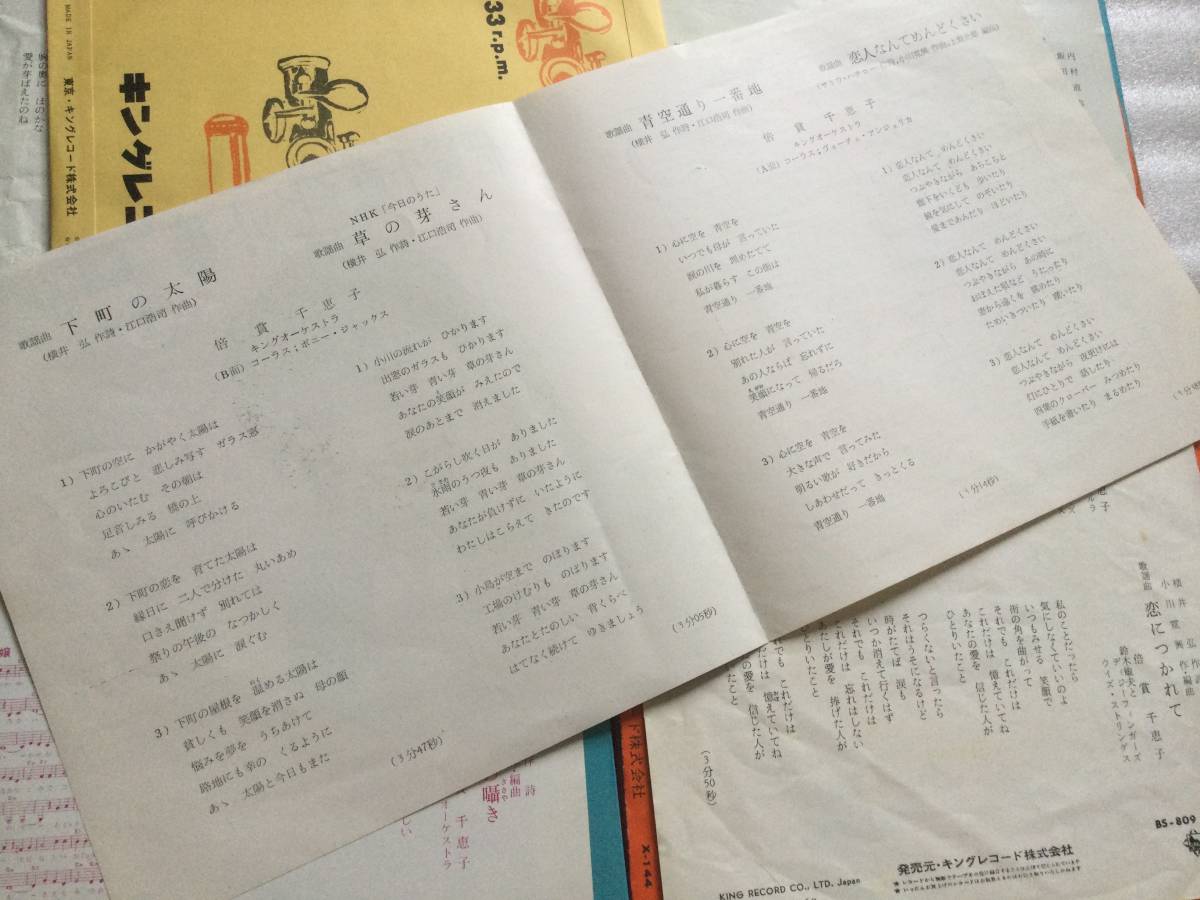 歌謡曲 下町の太陽
(横井 弘 作詩・江口浩司 作曲)
NHK「今日のうた」
歌謡曲 草の芽さん
(横井 弘 作詩・江口浩司 作曲)
倍賞千恵子
キングオーケストラ
(B面) コーラス;ボニー・ジャックス
1) 下町の空に かがやく太陽は
よろこびと 悲しみ写す ガラス窓
心のいたむ その朝は
足音しみる 橋の上
あゝ 太陽に 呼びかける
2) 下町の恋を 育てた太陽は
縁日に 二人で分けた 丸いあめ
口さえ聞けず 別れては
祭りの午後の なつかしく
あゝ 太陽に 涙ぐむ
3) 下町の屋根を 温める太陽は
貧しくも 笑顔を消さぬ 母の顔
悩みを夢を うちあけて
路地にも幸の くるように
あゝ 太陽と今日もまた
(3分47秒)
1) 小川の流れが ひかります
出窓のガラスも ひかります
若い芽 青い芽 草の芽さん
あなたの笑顔が みえたので
涙のあとまで 消えました
2) こがらし吹く日が ありました
氷雨のうつ夜も ありました
若い芽 青い芽 草の芽さん
あなたが負けずに いたように
わたしはこらえて きたのです
3) 小鳥が空まで のぼります
工場のけむりも のぼります
若い芽 青い芽 草の芽さん
あなたとたのしい 背くらべ
はてなく続けて ゆきましょう
(3分05秒)
歌謡曲 青空通り一番地
(横井 弘 作詩・江口浩司 作曲)
歌謡曲 恋人なんてめんどくさい
倍賞千恵子
キングオーケストラ
(A面) コーラス;ヴォーチェ・アンジェリカ
1) 心に空を 青空を
いつでも母が 言っていた
涙の川を 埋めたてて
私が暮らす この街は
青空通り 一番地
2) 心に空を 青空を
別れた人が 言っていた
あの人ならば 忘れずに
笑顔になって 帰るだろ
青空通り 一番地
3) 心に空を 青空を
大きな声で 言ってみた
明るい歌が 好きだから
しあわせだって きっとくる
青空通り 一番地
(3分14秒)
1) 恋人なんて めんどくさい
恋人なんて めんどくさい
つぶやきながら あちこちと
廊下をいくども 歩いたり
鏡を気にして のぞいたり
髪まであんだり ほどいたり
2) 恋人なんて めんどくさい
恋人なんて めんどくさい
つぶやきながら あの時に
おぼえた唄など うたったり
窓から遠くを 眺めたり
ためいきついたり 聞いたり
3) 恋人なんて めんどくさい
恋人なんて めんどくさい
つぶやきながら 夜更けには
灯にひとりで 話したり
四葉のクローバー みつめたり
手紙を書いたり まるめたり
MADE IN JAPAN
東京・キングレコード株式会社
キングレコ
33 r.p.m.
胸の奥に ほのかな
愛が芽ばえたのね
歌謡曲 恋につかれて
横井 弘 作詩
小川寛興 作編曲
倍賞千恵子
鈴木敏夫と
デイジーフィンガーズ
ウイズ・ストリングス
私のことだったら
気にしなくていいのよ
いつもみせる 笑顔で
雨の角を曲がって
それでも これだけは
これだけは 憶えていてね
あなたの愛を 信じた人が
ひとりいたこと
つらくないと言ったら
それはうそになるけど
時がたてば 涙も
いつか消えて行くはず
それでも これだけは
これだけは 忘れはしない
あたしが愛を 捧げた人が
ひとりいたこと
それでも これだけは
これだけは 憶えていてね
あなたの愛を 信じた人が
ひとりいたこと
(3分50秒)
BS-809
発売元・キングレコード株式会社
KING RECORD CO., LTD. Japan
ド株式会社
X-144
囁き
千恵子
オーケストラ